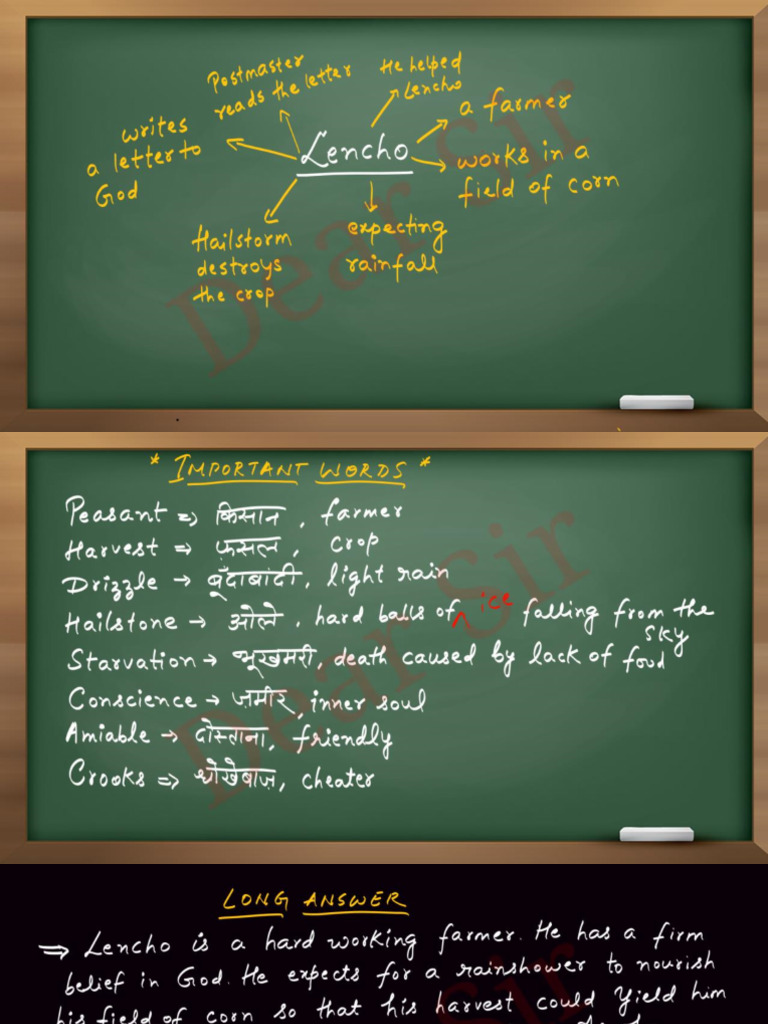 Postmaster
reads the letter
He helped
Lencho
a farmer
writes
a letter to
God
Lencho
works in a
field of corn
Hailstorm
destroys
the crop
expecting
rainfall
Dear Sir
* IMPORTANT WORDS *
Peasant => किसान, farmer
Harvest => फ़सल, crop
Drizzle → बूँदाबांदी, light rain
Hailstone → ओले, hard balls of ice falling from the
sky
Starvation → भूखमरी, death caused by lack of food
Conscience → ज़मीर, inner soul
Amiable → दोस्ताना, friendly
Crooks => धोखेबाज़, cheater
Dear Sir
LONG ANSWER
=> Lencho is a hard working farmer. He has a firm
belief in God. He expects for a rainshower to nourish
his field of corn so that his harvest could yield him